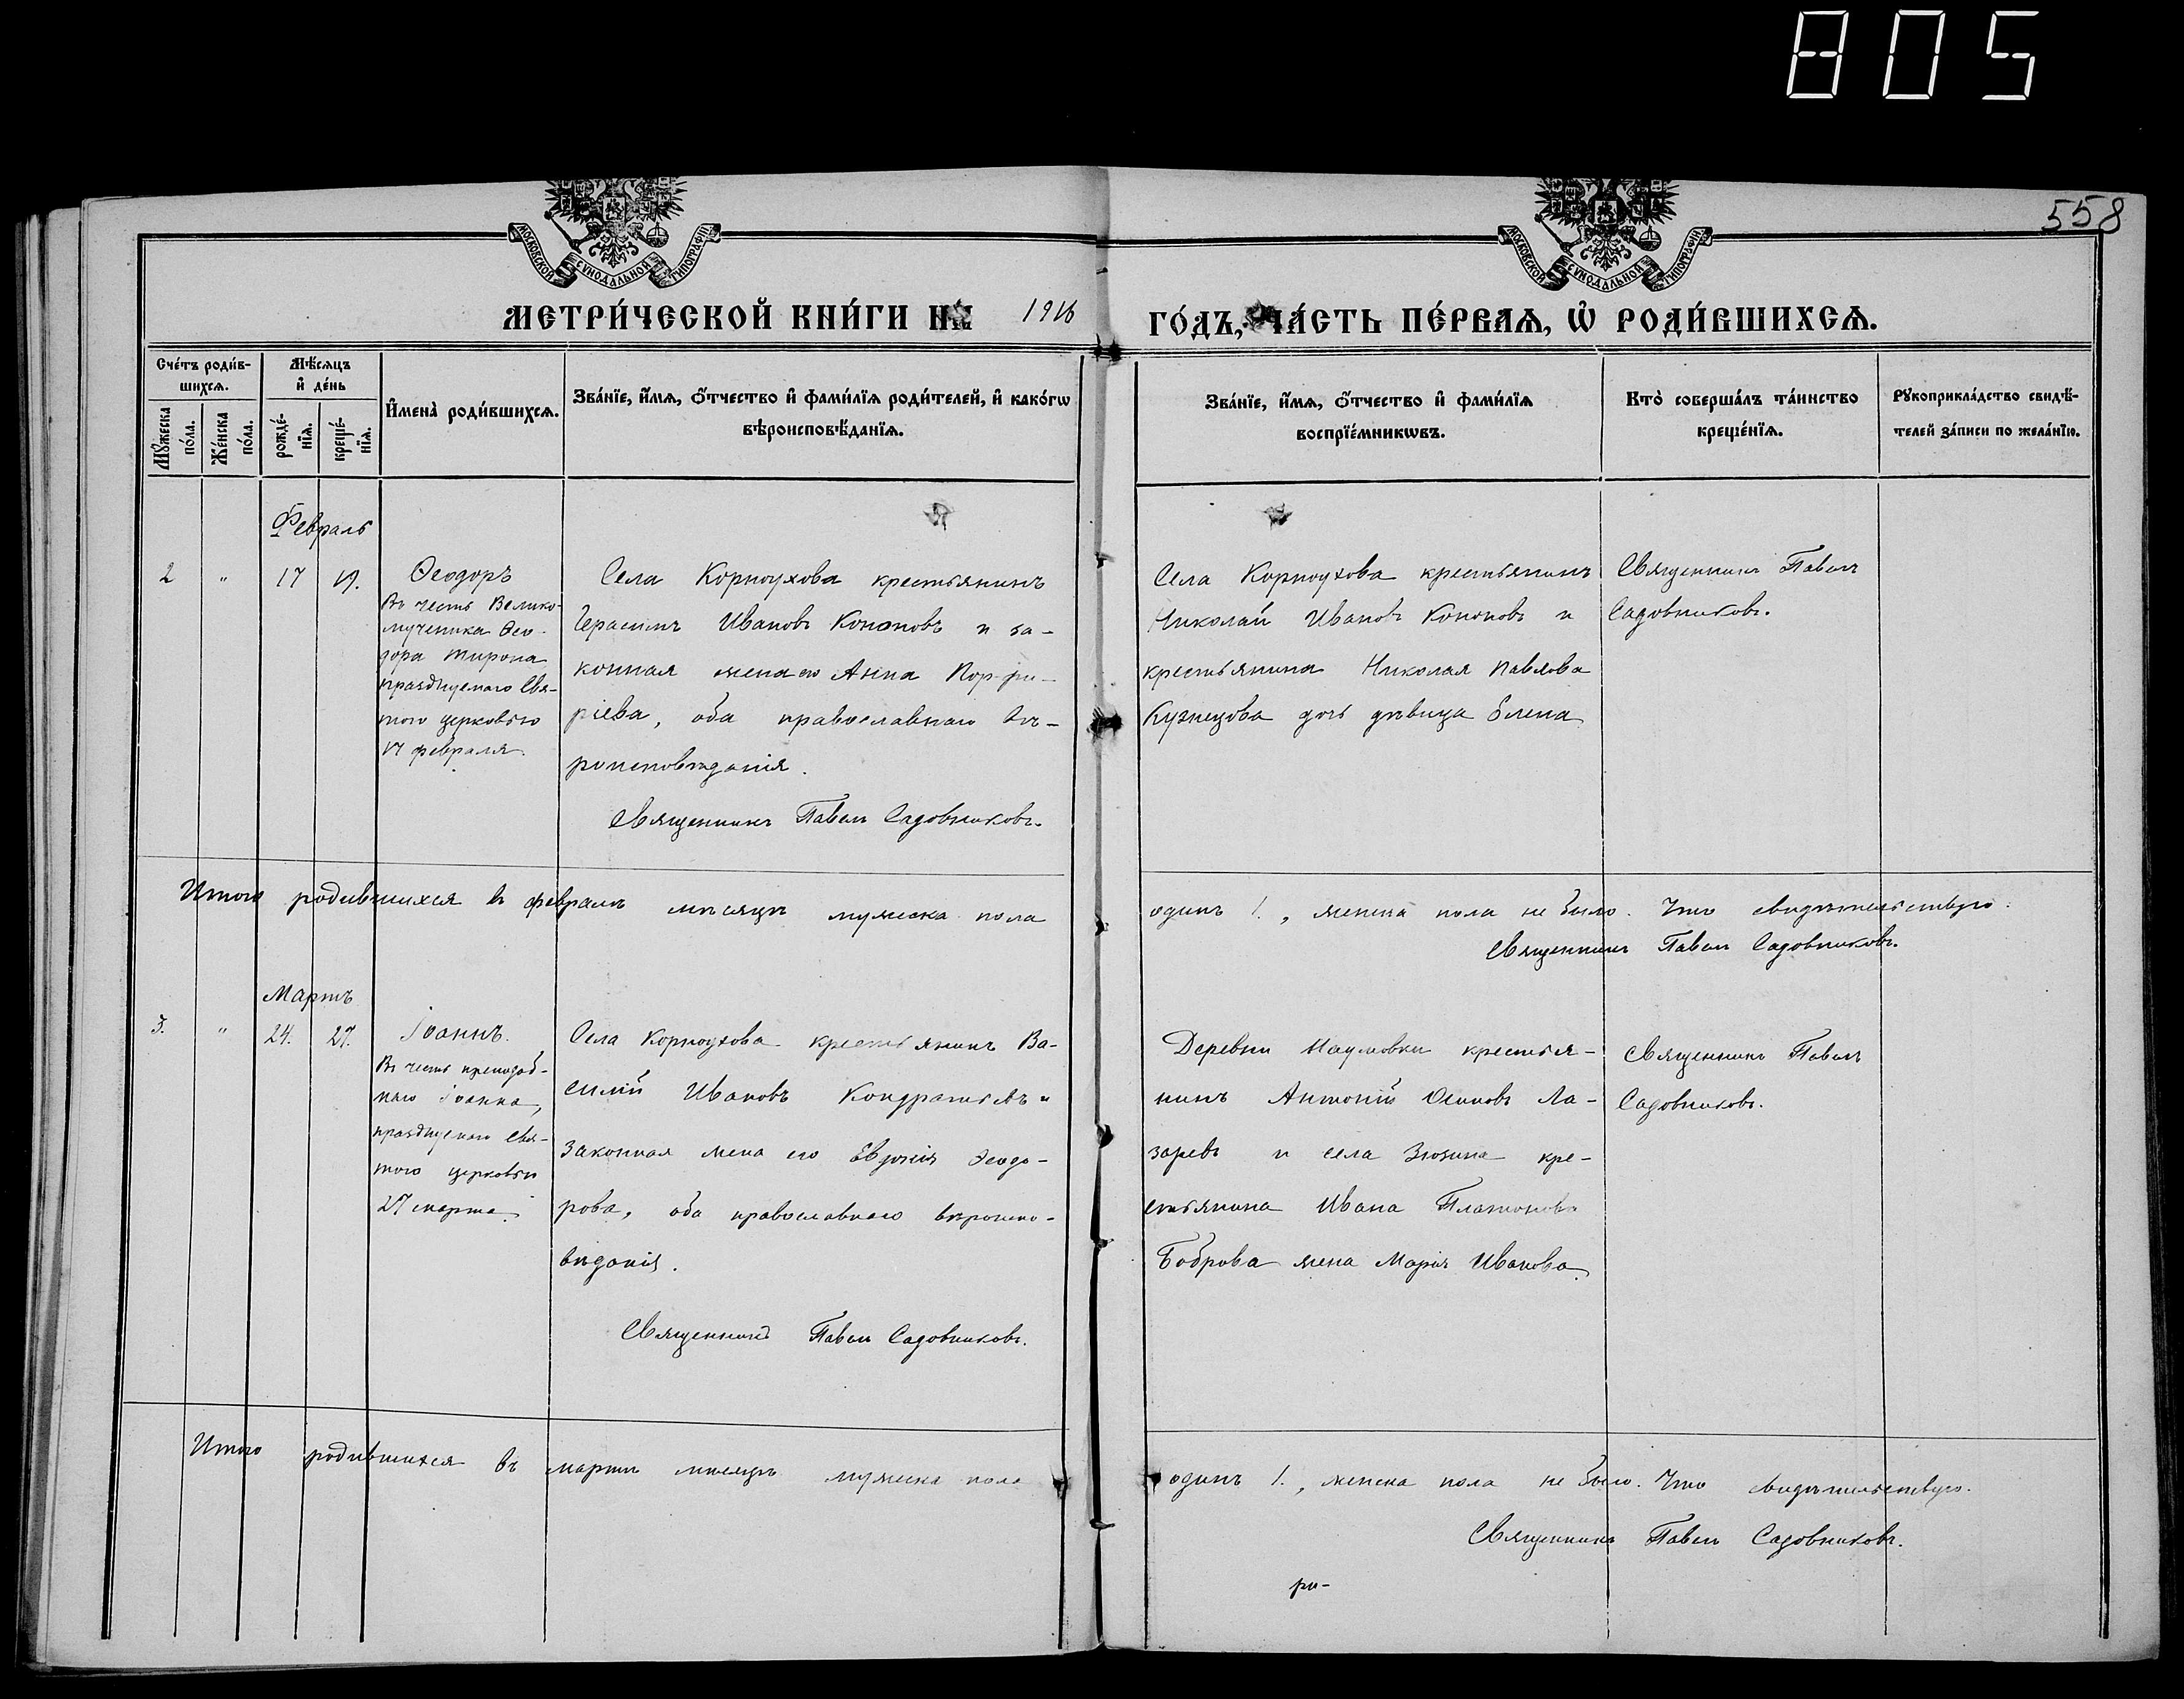 805
558
МОСКОВСКОЙ СѴНОДАЛЬНОЙ ТИПОГРАФІИ
МОСКОВСКОЙ СѴНОДАЛЬНОЙ ТИПОГРАФІИ
МЕТРИ́ЧЕСКОЙ КНИ́ГИ НА 1916 ГО́ДЪ, ЧА́СТЬ ПЕ́РВАѦ, Ѡ҆ РОДИ́ВШИХСѦ.
Сче́тъ роди́в-
шихсѧ.
Мꙋ́жеска
по́ла.
Же́нска
по́ла.
Мѣ́сѧцъ
и҆ де́нь
рожде́-
нїѧ.
креще́-
нїѧ.
И҆мена̀ роди́вшихсѧ.
Зва́нїе, и҆́мѧ, ѻ҆́тчество и҆ фами́лїѧ роди́телей, и҆ како́гѡ
вѣроисповѣ́данїѧ.
Зва́нїе, и҆́мѧ, ѻ҆́тчество и҆ фами́лїѧ
воспрїе́мникѡвъ.
Кто̀ соверша́лъ та́инство
креще́нїѧ.
Рꙋкоприкла́дство свидѣ́-
телей за́писи по жела́нїю.
Февраль
2 " 17 19.
Ѳеодоръ
Въ честь Велико-
мученика Ѳео-
дора Тирона
празднуемаго Свя-
тою церковью
17 февраля.
Села Корноухова крестьянинъ
Герасимъ Ивановъ Кононовъ и за-
конная жена его Анна Порфи-
ріева, оба православнаго вѣ-
роисповѣданія.
Священникъ Павелъ Садовниковъ.
Села Корноухова крестьянинъ
Николай Ивановъ Кононовъ и
крестьянина Николая Павлова
Кузнецова дочь дѣвица Елена
Священникъ Павелъ
Садовниковъ.
Итого родившихся въ февралѣ мѣсяцѣ мужеска пола одинъ 1., женска пола не было. Что свидѣтельствую.
Священникъ Павелъ Садовниковъ.
Мартъ
3. " 24. 27.
Іоаннъ.
Въ честь преподоб-
наго Іоанна,
празднуемаго Свя-
тою церковью
27 марта.
Села Корноухова крестьянинъ Ва-
силій Ивановъ Кондратьевъ и
законная жена его Ѳеодо-
рова, оба православнаго вѣроиспо-
вѣданія.
Священникъ Павелъ Садовниковъ.
Деревни Наумовки крестья-
нинъ Антоній Осиповъ Ла-
заревъ и села Зюзина кре-
стьянина Ивана Платонова
Боброва жена Марія Иванова.
Священникъ Павелъ
Садовниковъ.
Итого родившихся въ мартѣ мѣсяцѣ мужеска пола одинъ 1., женска пола не было. Что свидѣтельствую.
Священникъ Павелъ Садовниковъ.
ри-